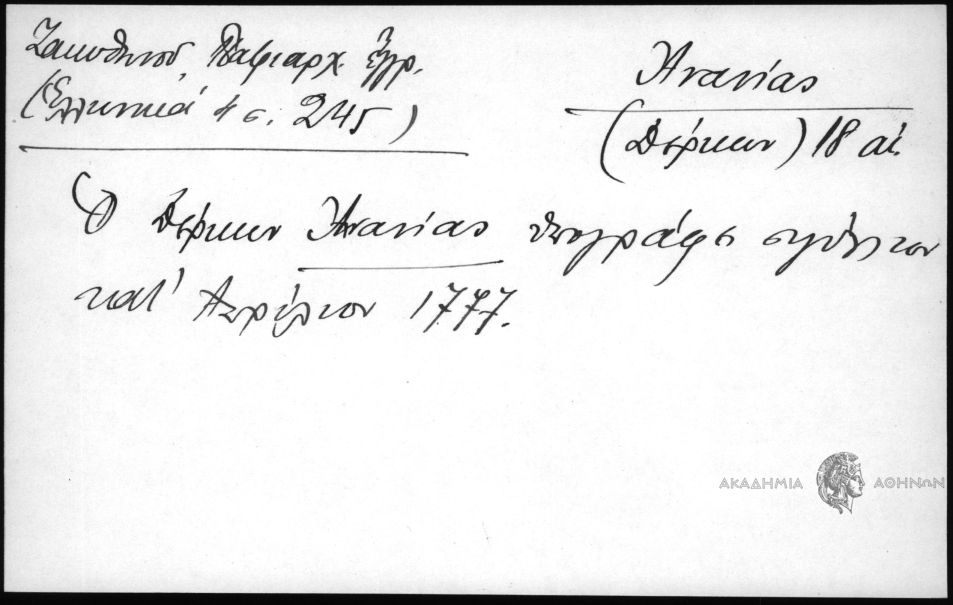 Ζακυθηνοῦ, Πατριαρχ. ἔγγρ.
(Ἑλληνικά 4 σ. 245)
Ἀνανίας
(Δέρκων) 18 αἰ.
Ὁ Δέρκων Ἀνανίας ὑπογράφει σιγίλλιον
κατ' Ἀπρίλιον 1777.
ΑΚΑΔΗΜΙΑ ΑΘΗΝΩΝ